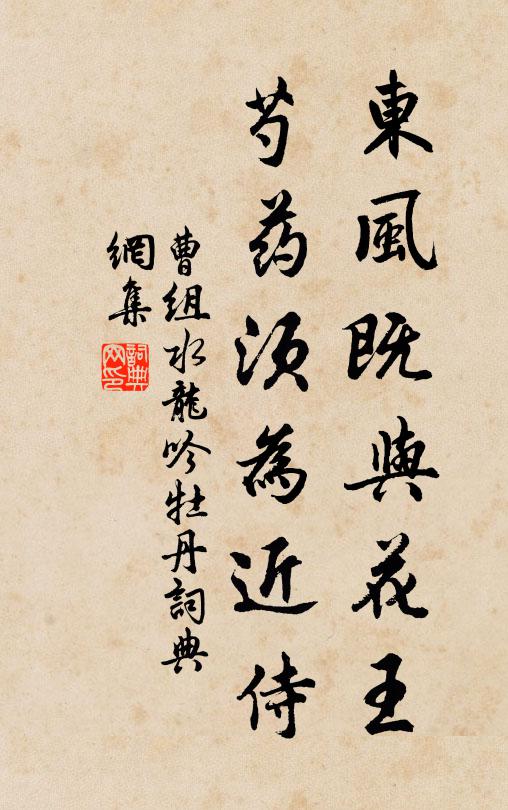 東風既與花王
芍药須為近侍
曹组水龍吟牡丹詞典
網集
詞典
网印